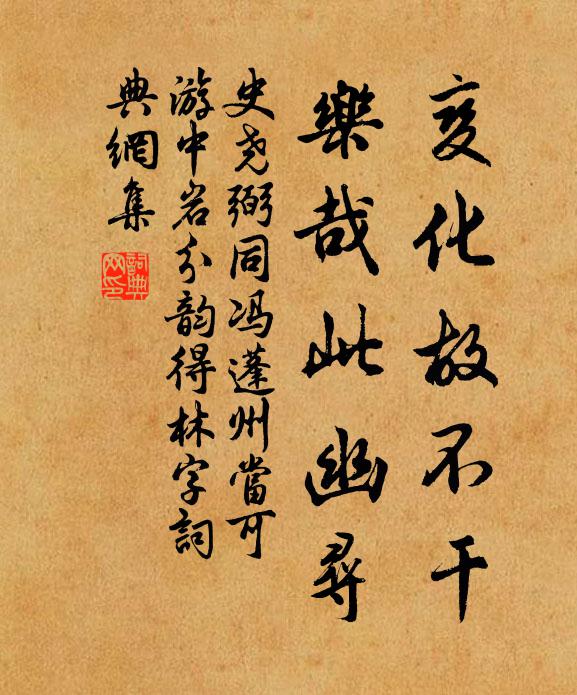 变化故不干
樂哉此幽尋
史尧弼同冯蓬州當可
游中岩分韵得林字詞
典網集
詞典网印